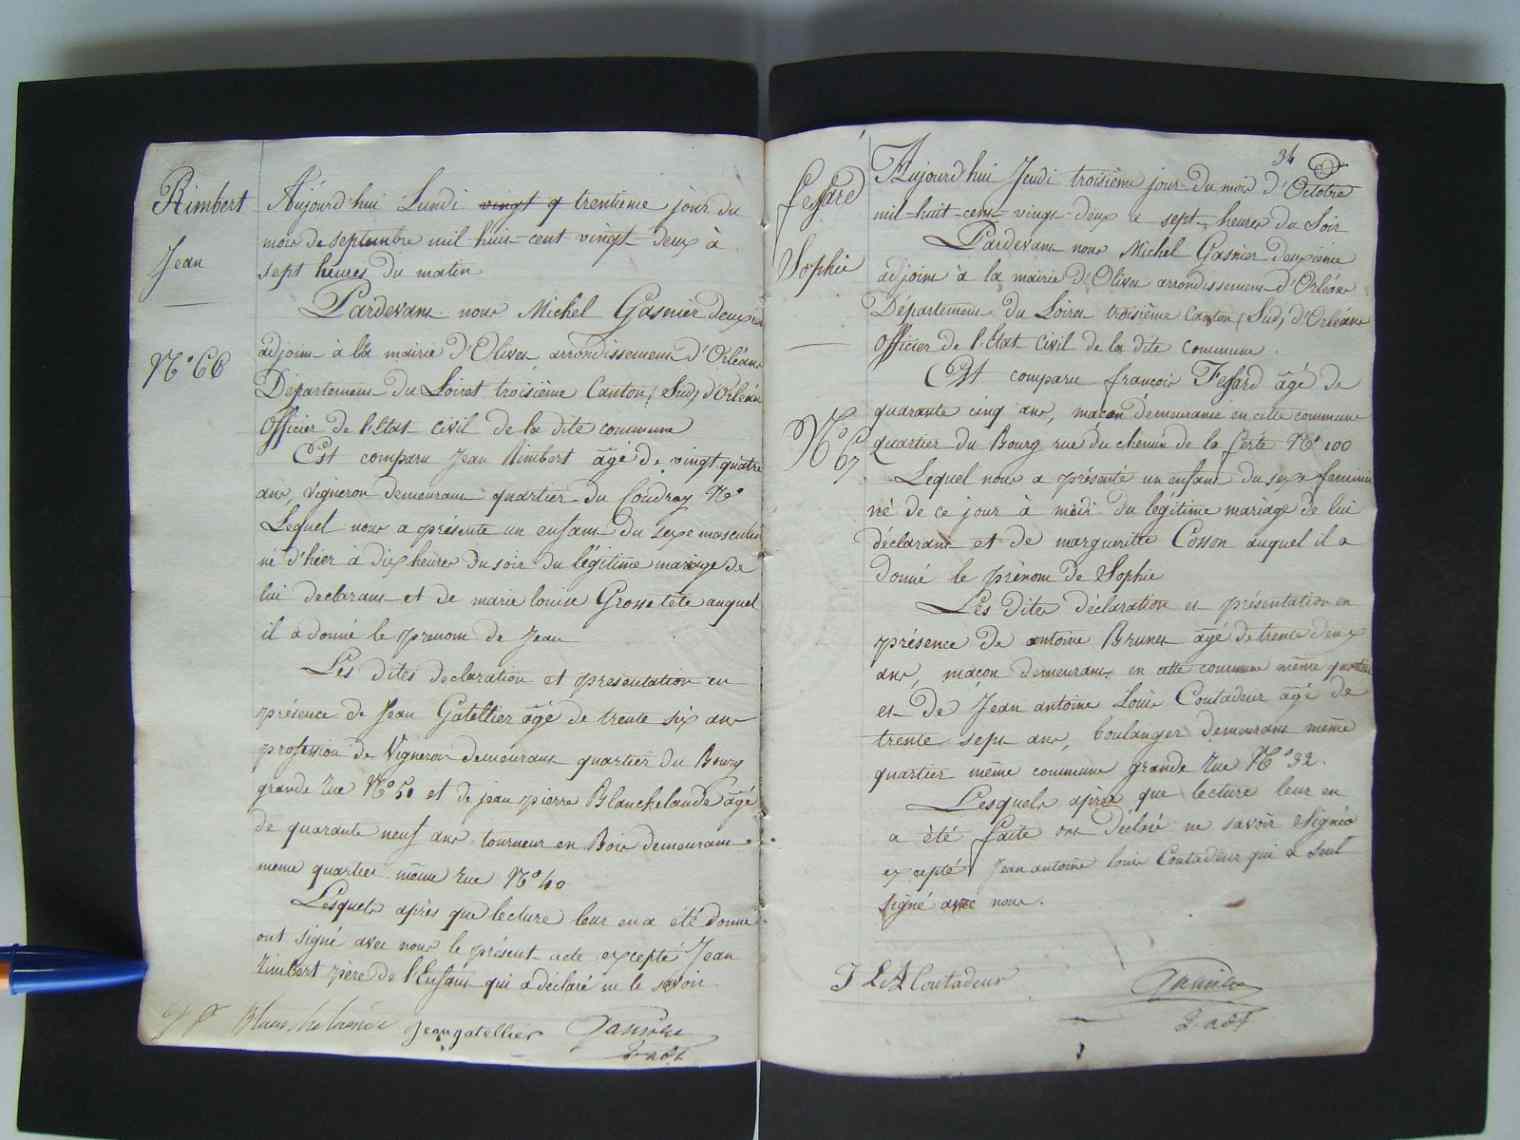 Rimbert
Jean
N° 66
Aujourd'hui Lundi vingt q trentième jour du
mois de septembre mil huit cent vingt deux à
sept heures du matin
Pardevant nous Michel Gasnier deuxiè
adjoint à la mairie d'Olivet arrondissement d'Orléans
Département du Loiret troisième Canton (Sud) d'Orléans
Officier de l'Etat civil de la dite commune
Est comparu Jean Rimbert âgé de vingt quatre
ans, vigneron demeurant quartier du Coudray N°
Lequel nous a présenté un enfant du sexe masculin
né d'hier à dix heures du soir du légitime mariage de
lui declarant et de marie louise Grossetete auquel
il a donné le prenom de Jean
Les dites declaration et presentation en
présence de Jean Gatellier âgé de trente six ans
profession de Vigneron demeurant quartier du Bourg
grande rue N° 50 et de jean pierre Blanchelande âgé
de quarante neuf ans tourneur en Bois demeurant
meme quartier même rue N° 40
Lesquels après que lecture leur en a été donné
ont signé avec nous le présent acte excepté Jean
Rimbert père de l'Enfant qui a déclaré ne le savoir
J P Blanchelande jean gatellier Gasnier
2. adt
34
fessard
Sophie
N° 67
Aujourd'hui Jeudi troisième jour du mois d'Octobre
mil-huit-cent vingt deux à sept heures du Soir
Pardevant nous Michel Gasnier deuxième
adjoint à la mairie d'Olivet arrondissement d'Orléans
Département du Loiret troisième Canton (Sud) d'Orléans
Officier de l'Etat Civil de la dite commune.
Est comparu françois Fessard âgé de
quarante cinq ans, maçon demeurant en cette commune
quartier du Bourg rue du chemin de la ferté N° 100
Lequel nous a présenté un enfant du sexe feminin
né de ce jour à midi du légitime mariage de lui
déclarant et de margueritte Cosson auquel il a
donné le prénom de Sophie
Les dites déclaration et présentation en
présence de antoine Brunet âgé de trente deux
ans, maçon demeurant en cette commune même quartier
et de Jean antoine Louis Coutadeur âgé de
trente sept ans, boulanger demeurant même
quartier même commune grande rue N° 32.
Lesquels après que lecture leur en
a été faite ont déclaré ne savoir signer
excepté Jean antoine louis Coutadeur qui a seul
signé avec nous.
J L A Coutadeur Gasnier
2. adt